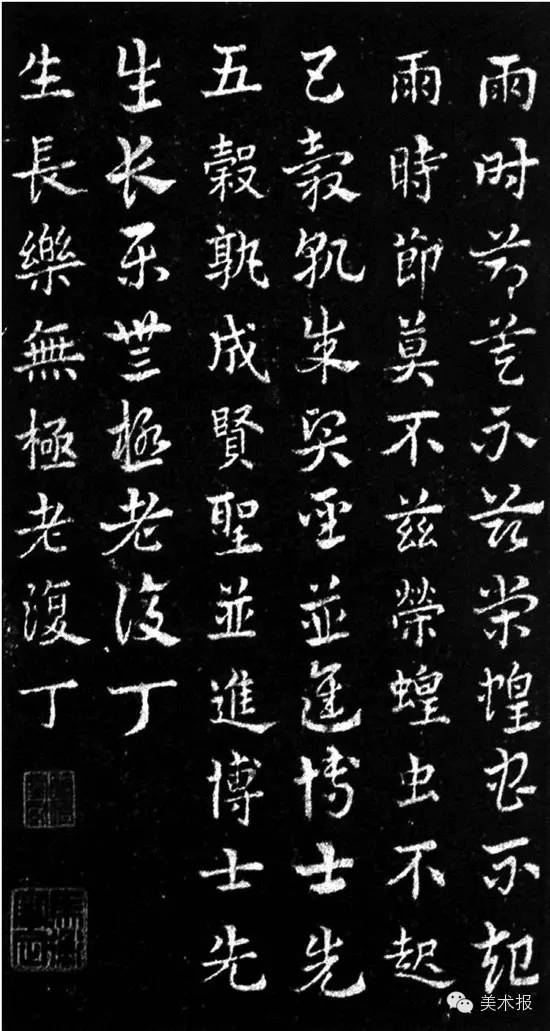 雨時節莫不兹榮蝗虫不起
雨時節莫不兹榮蝗虫不起
五穀孰成賢聖並進博士先
五穀孰成賢聖並進博士先
生長樂無極老復丁
生長樂無極老復丁
美术报